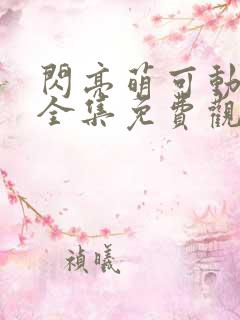 閃亮萌可動
全集免費觀
禎曦